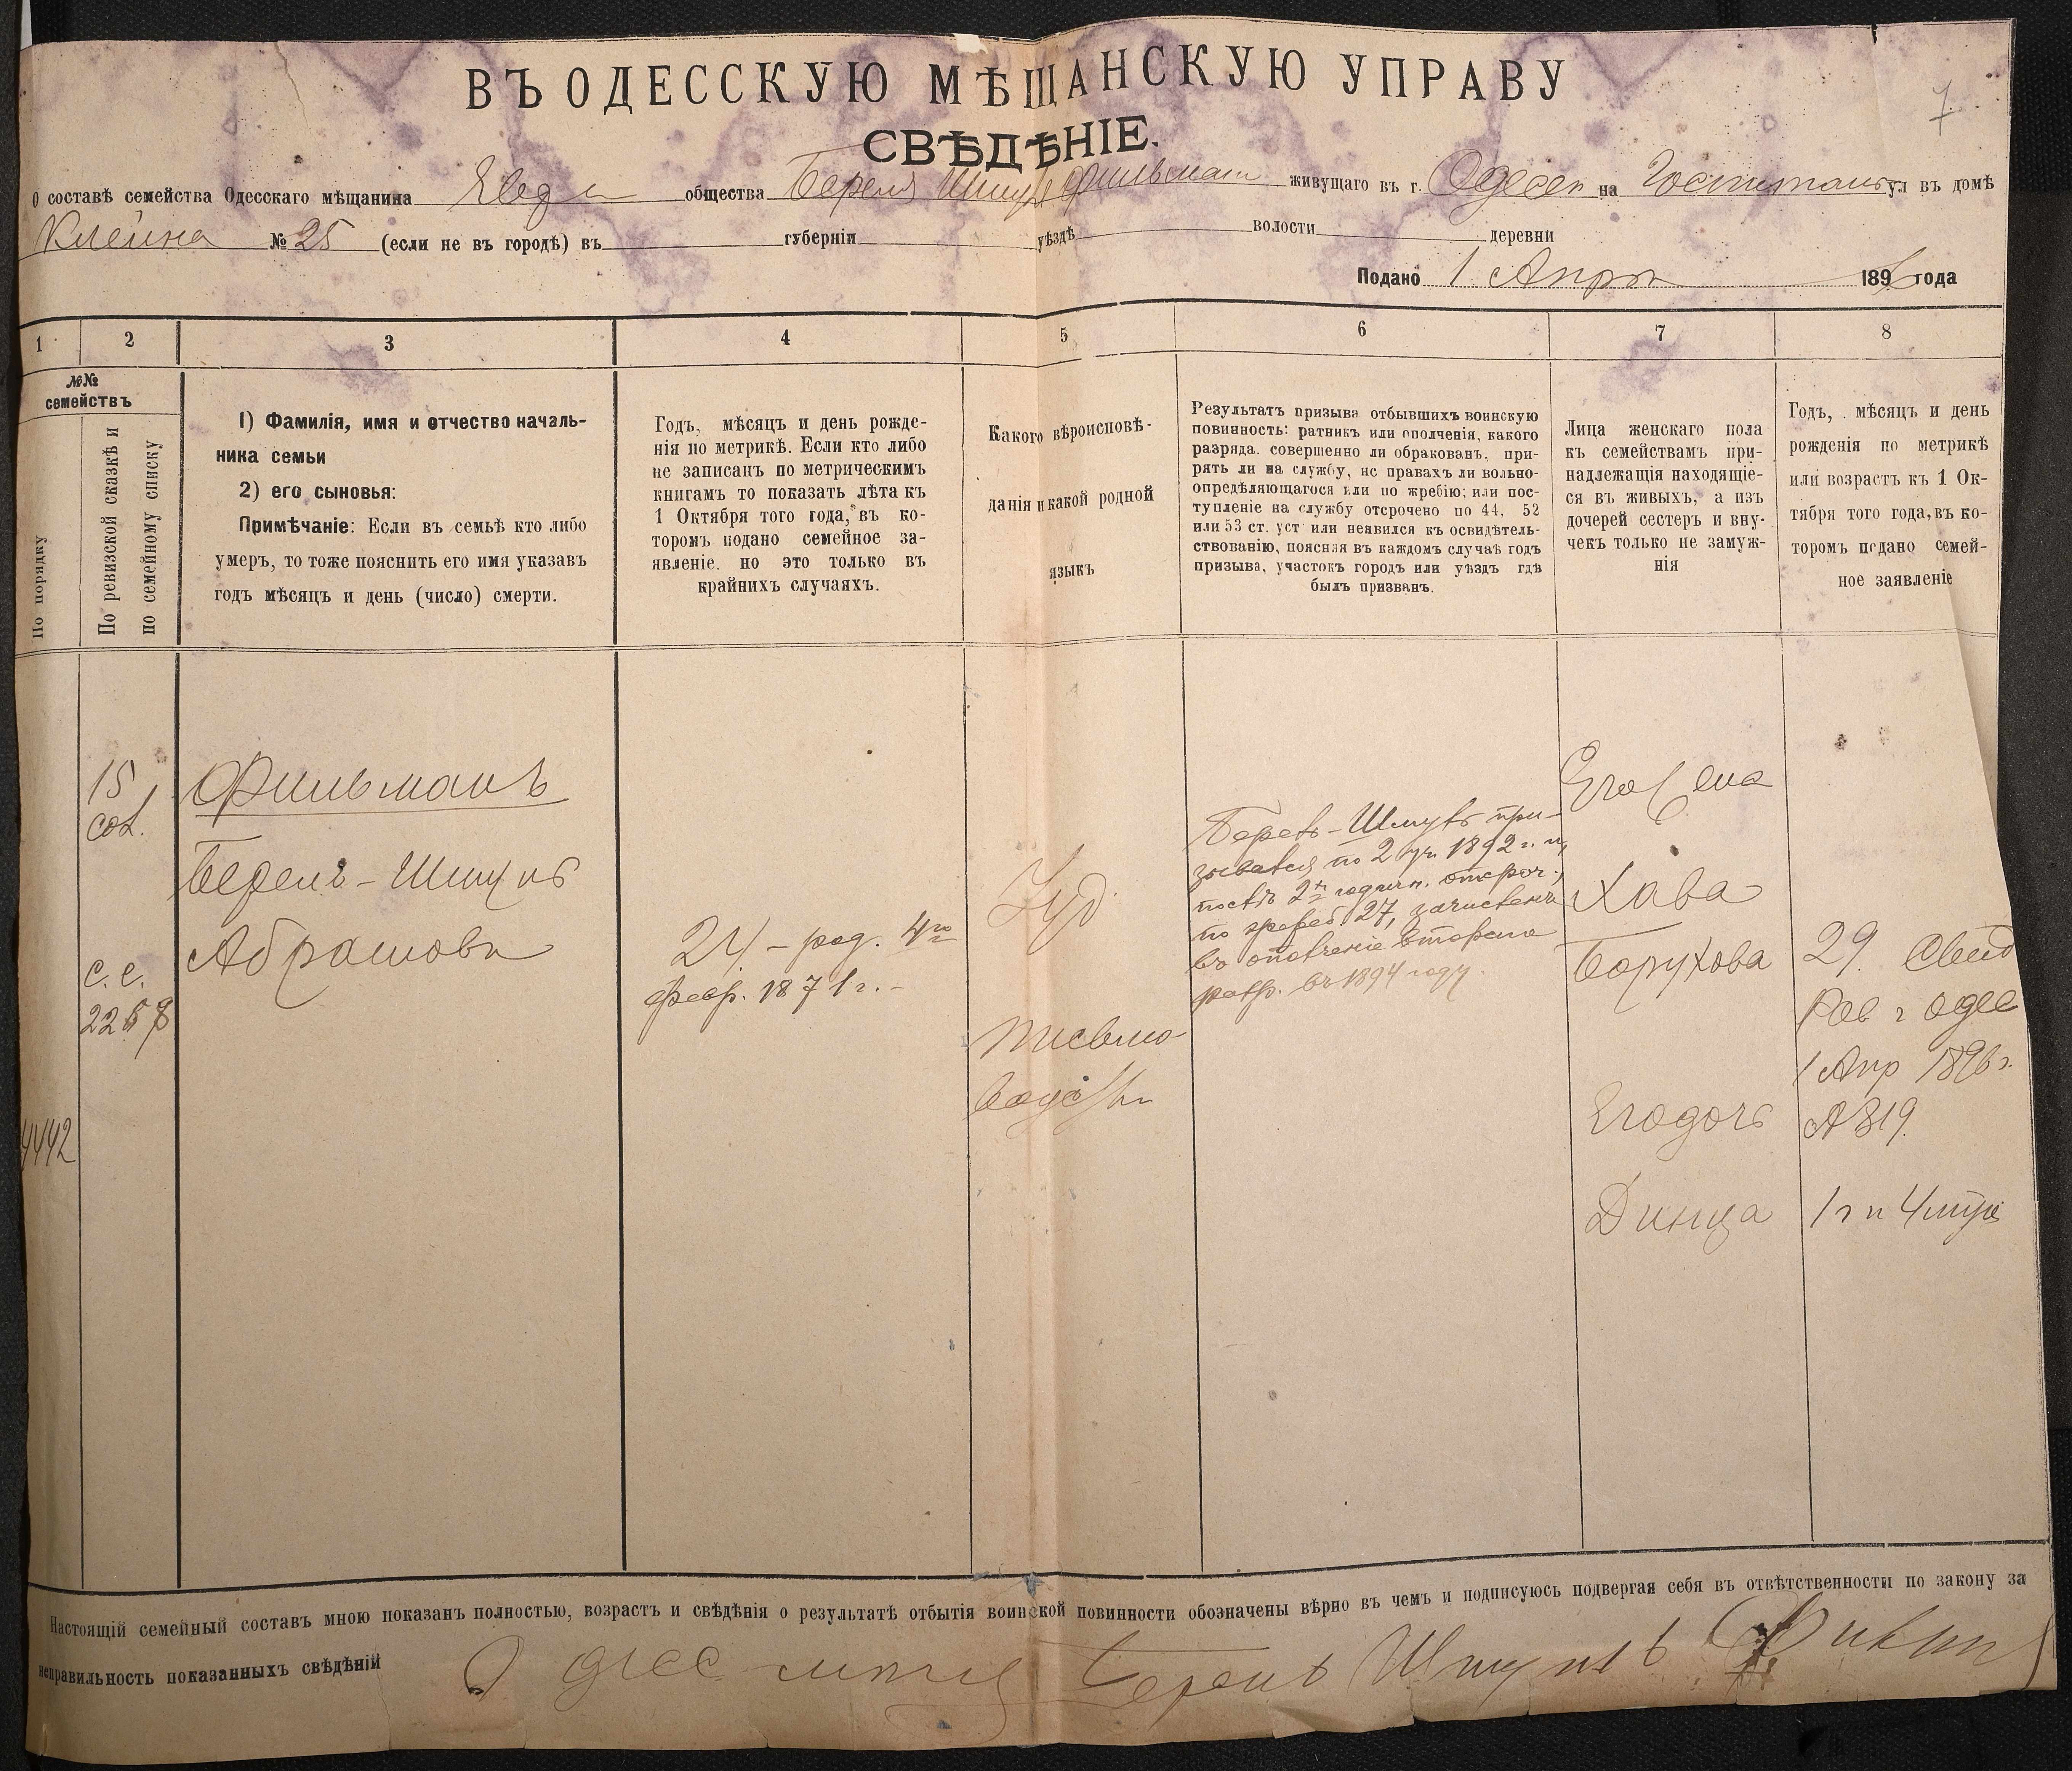 7
ВЪ ОДЕССКУЮ МѢЩАНСКУЮ УПРАВУ
СВѢДѢНІЕ.
О составѣ семейства Одесскаго мѣщанина общества Береля Шмуля Фильман живущаго въ г. Одессе на Госпитальн ул въ домѣ
Клейна № 25 (если не въ городѣ) въ губерніи уѣздѣ волости деревни
Подано 1 Апрѣ 189 года
1 2 3 4 5 6 7 8
№№ семействъ
По порядку
По ревизской сказкѣ и
по семейному списку
1) Фамилія, имя и отчество началь-
ника семьи
2) его сыновья:
Примѣчаніе: Если въ семьѣ кто либо
умеръ, то тоже пояснить его имя указавъ
годъ мѣсяцъ и день (число) смерти.
Годъ, мѣсяцъ и день рожде-
нія по метрикѣ. Если кто либо
не записанъ по метрическимъ
книгамъ то показать лѣта къ
1 Октября того года, въ ко-
торомъ подано семейное за-
явленіе. но это только въ
крайнихъ случаяхъ.
Какого вѣроисповѣ-
данія и какой родной
языкъ
Результатъ призыва отбывшихъ воинскую
повинность: ратникъ или ополченія, какого
разряда. совершенно ли обракованъ. при-
рять ли на службу, нс правахъ ли вольно-
опредѣляющагося или по жребію; или пос-
тупленіе на службу отсрочено по 44. 52
или 53 ст. уст или неявился къ освидѣтель-
ствованію, поясняя въ каждомъ случаѣ годъ
призыва, участокъ городъ или уѣздъ гдѣ
былъ призванъ.
Лица женскаго пола
къ семействамъ при-
надлежащія находящіе-
ся въ живыхъ, а изъ
дочерей сестеръ и вну-
чекъ только не замуж-
нія
Годъ, мѣсяцъ и день
рожденія по метрикѣ
или возрастъ къ 1 Ок-
тября того года, въ ко-
торомъ подано семей-
ное заявленіе
15
сот.
с. с.
2258
4442
Фильманъ
Берель-Шмуль
Абрамовъ
24 - род. 4го
февр. 1871 г. -
Іуд.
Берель-Шмуль при-
зывался по 2 уч. 1892 г. и,
послѣ 2х годичн. отсроч.,
по жреб. 27, зачисленъ
въ ополченіе втораго
разр. въ 1894 году.
Его жена
Хава
Борухова
Его дочь
Динца
29. Свид
Рав г Одес
1 Апр 1896 г.
№ 319.
1 г и 4 мѣс
Настоящій семейный составъ мною показанъ полностью, возрастъ и свѣдѣнія о результатѣ отбытія воинской повинности обозначены вѣрно въ чемъ и подписуюсь подвергая себя въ отвѣтственности по закону за
неправильность показанныхъ свѣдѣній Одесс Берель Шмуль